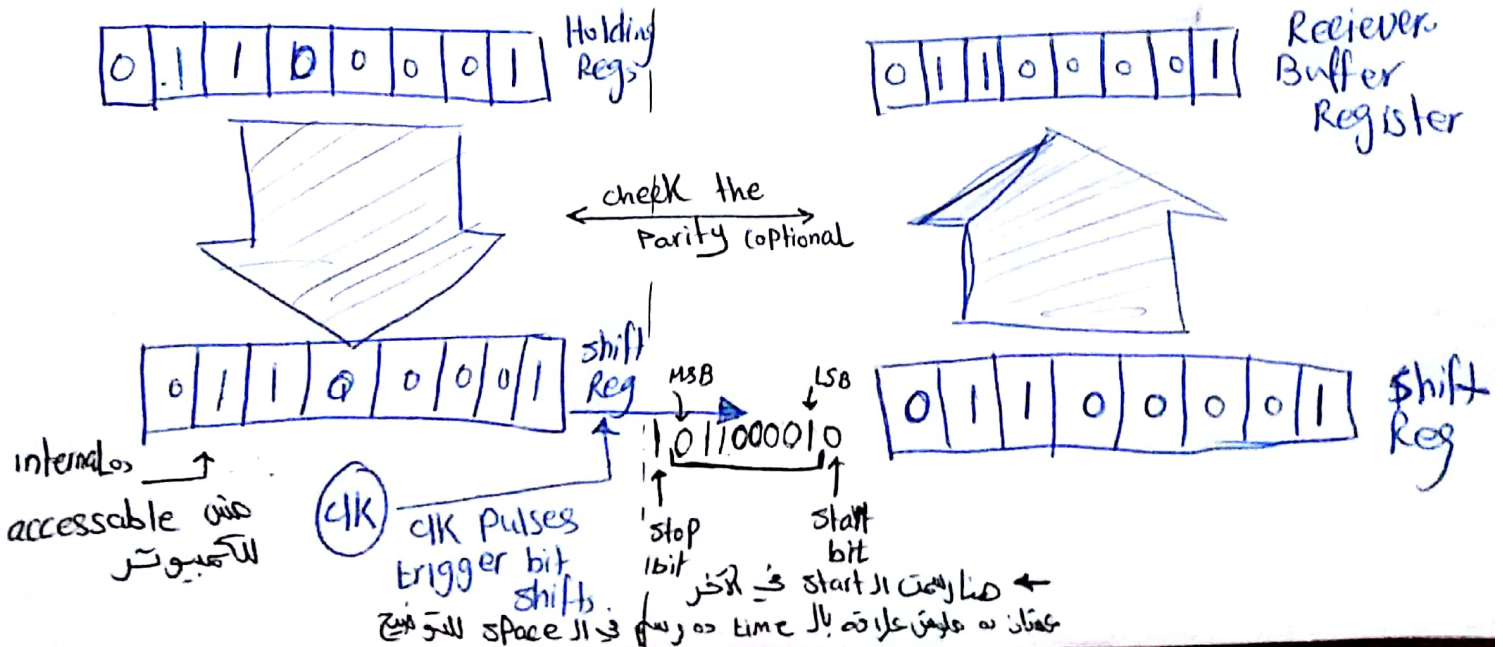 0 1 1 0 0 0 0 1
Holding
Regs
0 1 1 0 0 0 0 1
Reciever
Buffer
Register
chekk the
Parity (optional
0 1 1 0 0 0 0 1
shift
Reg
MSB
LSB
1 0 1 1 0 0 0 0 1 0
0 1 1 0 0 0 0 1
Shift
Reg
internal
accessable مش
للكمبيوتر
clk
clk Pulses
trigger bit
shifts.
stop
1bit
start
bit
← هنا رسمت ال start في الآخر
عشان ده ملوش علاقة بال time ده رسم في ال space للتوضيح